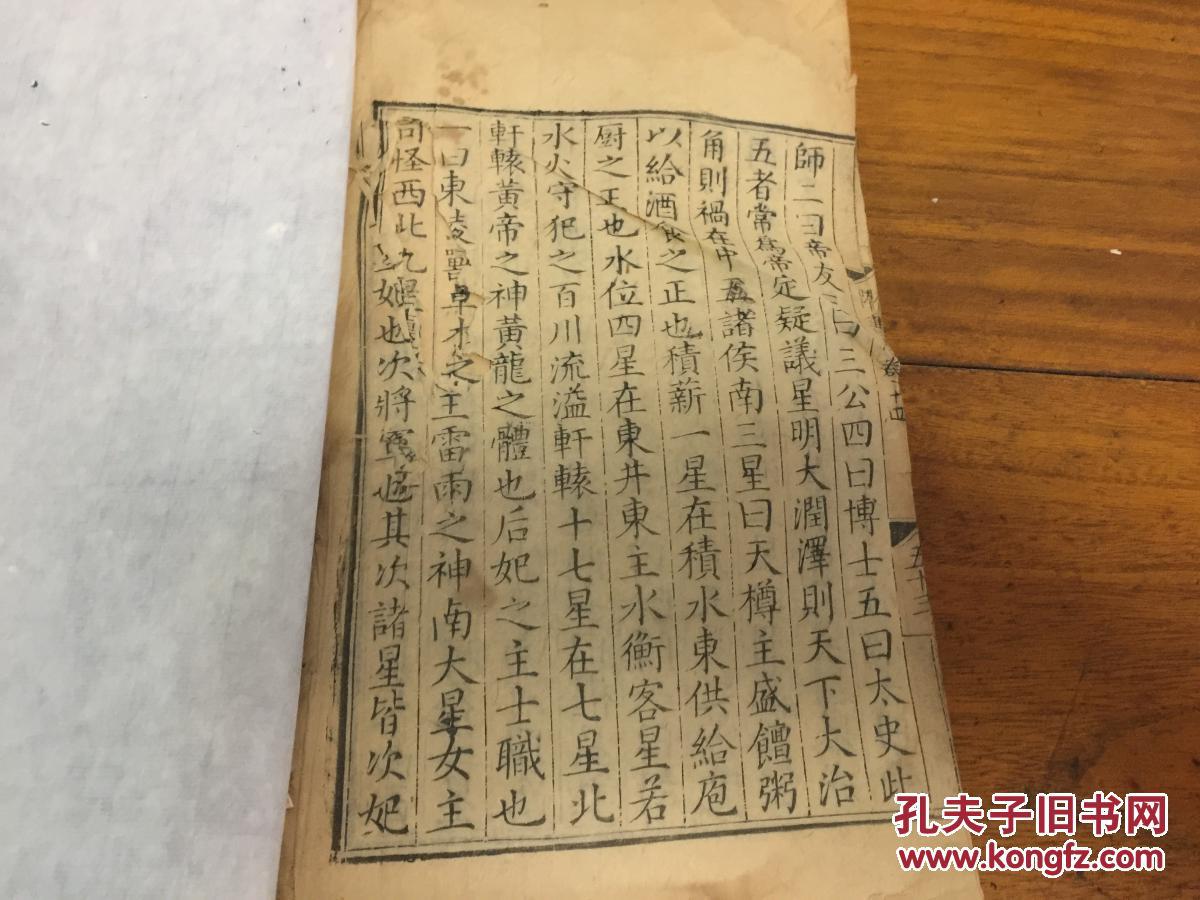 師二曰帝友三曰三公四曰博士五曰太史此
五者常爲帝定疑議星明大潤澤則天下大治
角則禍在中五諸侯南三星曰天樽主盛饘粥
以給酒食之正也積薪一星在積水東供給庖
厨之正也水位四星在東井東主水衡客星若
水火守犯之百川流溢軒轅十七星在七星北
軒轅黃帝之神黃龍之體也后妃之主士職也
一曰東陵 之主雷雨之神南大星女主
西北 也次將軍也其次諸星皆次妃
卷十四
五十三
孔夫子旧书网
www.kongfz.com